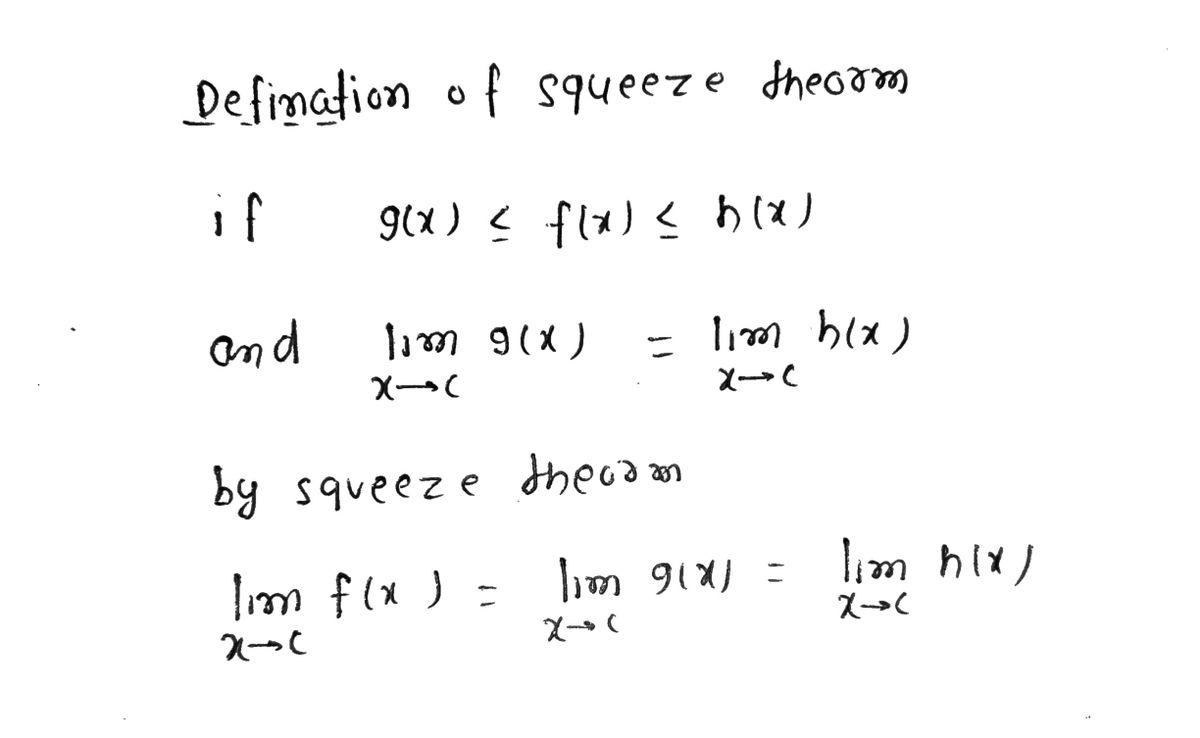 Defination of squeeze theorm
if g(x) ≤ f(x) ≤ h(x)
and lim g(x) = lim h(x)
x→c x→c
by squeeze theorm
lim f(x) = lim g(x) = lim h(x)
x→c x→c x→c